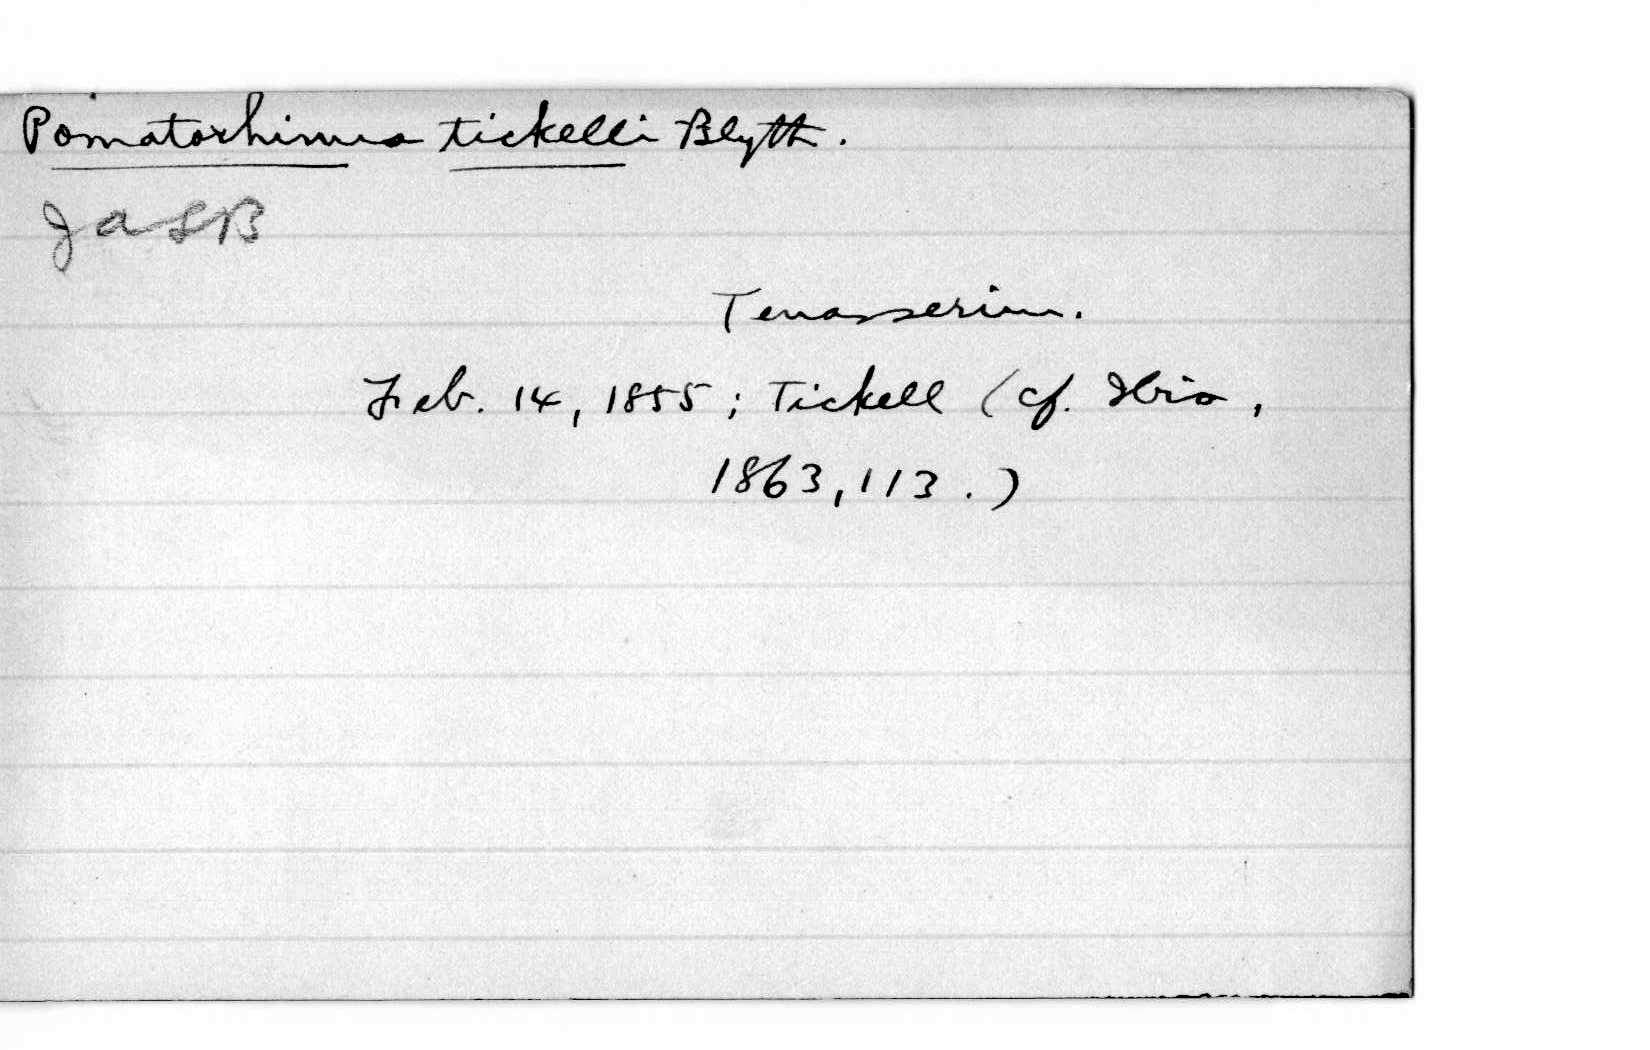 Pomatorhinus tickelli Blyth.
JASB
Tenasserim.
Feb. 14, 1855; Tickell (cf. Ibis,
1863, 113.)